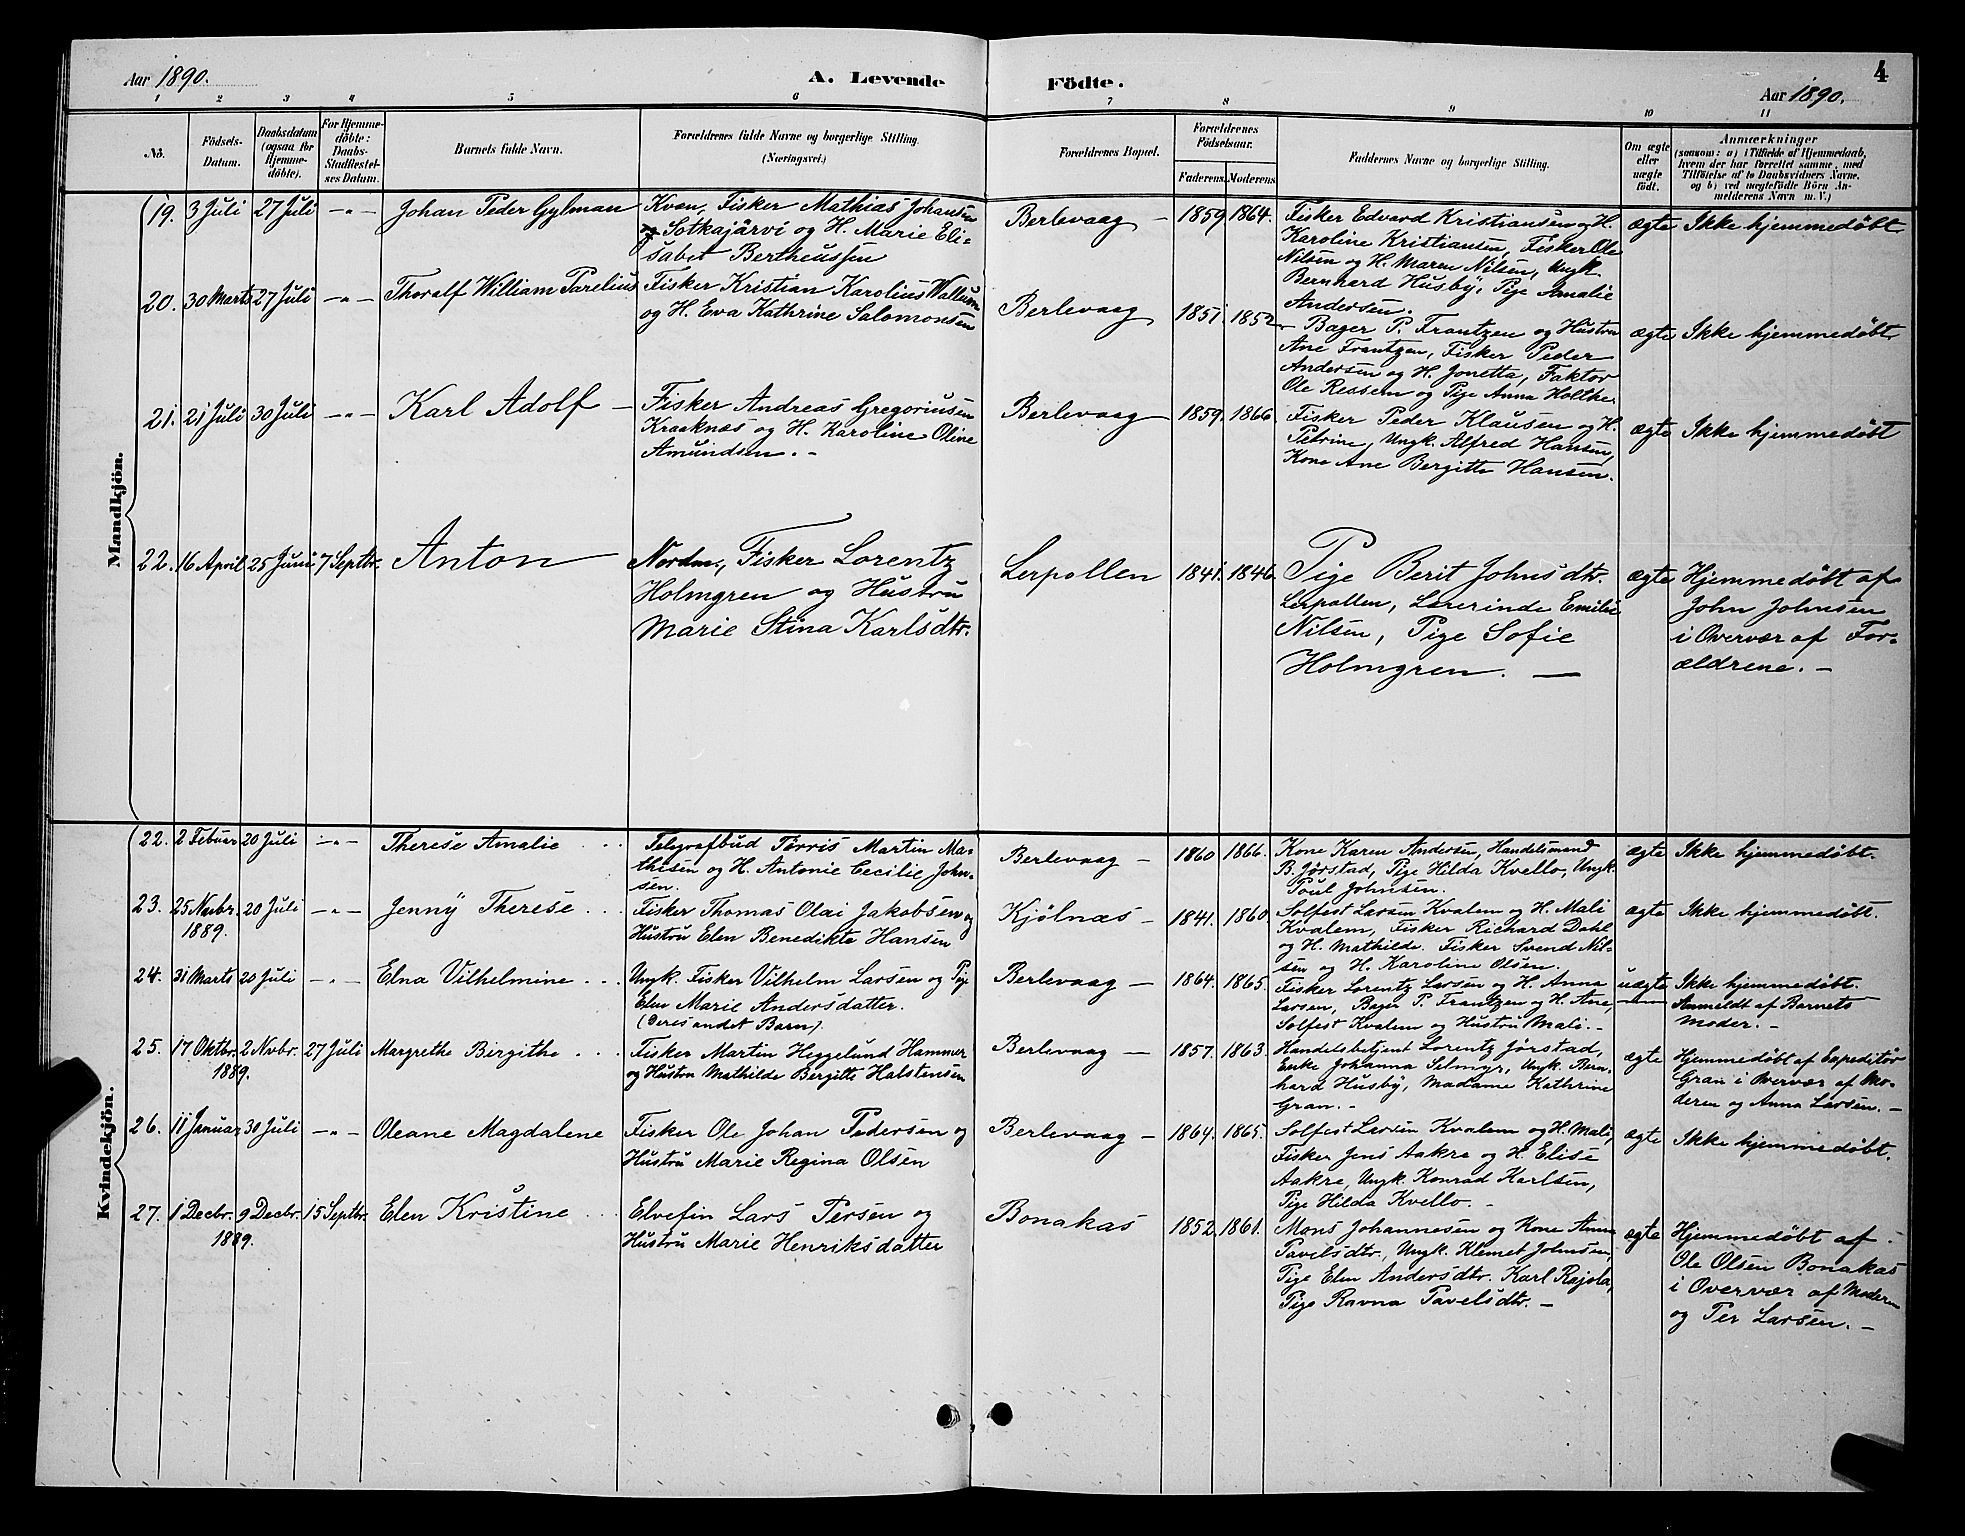 Aar 1890.
A. Levende Födte.
4
Aar 1890.
1 2 3 4 5 6 7 8 9 10 11
No.
Födsels-
Datum.
Daabsdatum
(ogsaa for
Hjemme-
döbte).
For Hjemme-
döbte:
Daabs-
Stadfæstel-
ses Datum.
Barnets fulde Navn.
Forældrenes fulde Navne og borgerlige Stilling.
(Næringsvei.)
Forældrenes Bopæl.
Forældrenes
Födselsaar.
Faderens. Moderens
Faddernes Navne og borgerlige Stilling.
Om ægte
eller
uægte
födt.
Anmærkninger
(saasom: a) i Tilfælde af Hjemmedaab,
hvem der har forrettet samme, med
Tilföielse af to Daabsvidners Navne,
og b) ved uægtefödte Börn An-
melderens Navn m. V.)
Mandkjön.
19. 3 Juli 27 Juli -"- Johan Peder Gylman
Kvæn, Fisker Mathias Johansen
og Sotkajärvi og H. Marie Eli-
sabet Bertheussen
Berlevaag - 1859 1864.
Fisker Edvard Kristiansen og H.
Karoline Kristiansen, Fisker Ole
Nilsen og H. Maren Nilsen, Ungk.
Bernhard Husby, Pige Amalie
Andersen.
ægte Ikke hjemmedøbt
20. 30 Marts 27 Juli -"- Thoralf William Parelius
Fisker Kristian Karolius Wallum
og H. Eva Kathrine Salomonsen
Berlevaag 1851. 1852
- Bager P. Frantzen og Hustru
Ane Frantzen, Fisker Peder
Andersen og H. Jonetta, Faktor
Ole Ressem og Pige Anna Holthe.
ægte Ikke hjemmedøbt
21. 21 Juli 30 Juli -"- Karl Adolf -
Fisker Andreas Gregoriusen
Kraaknæs og H. Karoline Oline
Amundsen. -
Berlevaag 1859. 1866
Fisker Peder Klausen og H.
Petrine, Ungk. Alfred Hansen,
Kone Ane Bergitte Hansen.
ægte Ikke hjemmedøbt
22. 16 April 25 Juni 7 Septbr. Anton
Nordm., Fisker Lorentz
Holmgren og Hustru
Marie Stina Karlsdtr.
Lerpollen 1841. 1846
Pige Berit Johnsdtr.
Lerpollen, Lærerinde Emilie
Nilsen, Pige Sofie
Holmgren. -
ægte Hjemmedøbt af
John Johnsen
i Overvær af For-
ældrene. -
Kvindekjön.
22. 2 Februar 20 Juli -"- Therese Amalie
Telegrafbud Tørris Martin Ma-
thisen og H. Antonie Cecilie John-
sen.
Berlevaag - 1860 1866.
Kone Karen Andersen, Handelsmand
B. Jørstad, Pige Hilda Kvello, Ungk.
Poul Johnsen.
ægte Ikke hjemmedøbt.
23. 25 Novbr. 20 Juli -"- Jenny Therese
1889.
Fisker Thomas Olai Jakobsen og
Hustru Elen Benedikte Hansen
Kjølnæs - 1841. 1860
Solfest Larsen Kvalem og H. Mali
Kvalem, Fisker Richard Dahl
og H. Mathilde. Fisker Svend Nil-
sen og H. Karoline Olsen.
ægte Ikke hjemmedøbt.
24. 31 Marts 20 Juli -"- Elna Vilhelmine
Ungk. Fisker Vilhelm Larsen og Pige
Elen Marie Andersdatter.
(Deres andet Barn).
Berlevaag - 1864. 1865.
Fisker Lorentz Larsen og H. Anna
Larsen, Bager P. Frantzen og H. Ane,
Solfest Kvalem og Hustru Mali. -
uægte Ikke hjemmedøbt.
Anmeldt af Barnets
Moder. -
25. 17 Oktbr. 2 Novbr. 27 Juli Margrethe Birgithe
1889.
Fisker Martin Heggelund Hammer
og Hustru Mathilde Bergitte Halstensen
Berlevaag - 1857. 1863.
Handelsbetjent Lorentz Jørstad,
Enke Johanna Selmyr, Ungk. Bern-
hard Husby, Madame Kathrine
Gran. -
ægte Hjemmedøbt af Expeditør
Gran i Overvær af Mo-
deren og Anna Larsen. -
26. 11 Januar 30 Juli -"- Oleane Magdalene
Fisker Ole Johan Pedersen og
Hustru Marie Regina Olsen
Berlevaag - 1864. 1865.
Solfest Larsen Kvalem og H. Mali,
Fisker Jens Aakre og H. Elise
Aakre, Ungk. Konrad Karlsen,
Pige Hilda Kvello. -
ægte Ikke hjemmedøbt.
27. 1 Decbr. 9 Decbr. 15 Septbr. Elen Kristine
1889.
Elvefin Lars Persen og
Hustru Marie Henriksdatter
Bonakas 1852. 1861.
Mons Johannesen og Kone Anna
Pavelsdtr., Ungk. Klemet Johnsen,
Pige Elen Andersdtr. Karl Rajola,
Pige Ravna Pavelsdtr. -
ægte Hjemmedøbt af
Ole Olsen Bonakas
i Overvær af Moderen
og Per Larsen. -